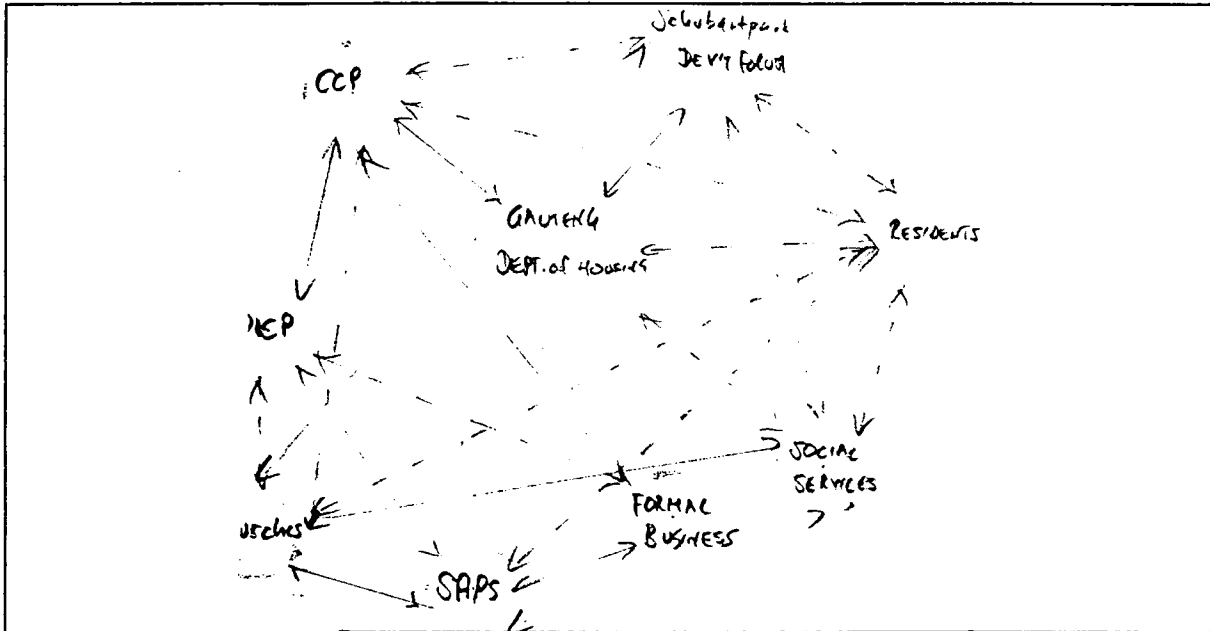 Schubartpark
DEV'T FORUM
CCP
GAUTENG
DEPT. of HOUSING
RESIDENTS
SOCIAL
SERVICES
FORMAL
BUSINESS
SAPS